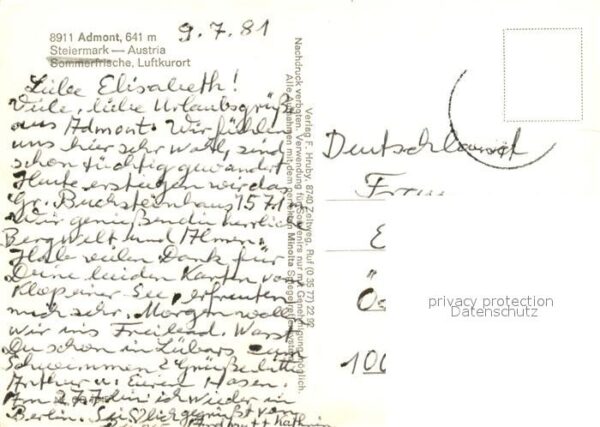 8911 Admont, 641 m
Steiermark — Austria
Sommerfrische, Luftkurort
9.7.81
Liebe Elisabeth!
Viele, liebe Urlaubsgrüße
aus Admont. Wir fühlen
uns hier sehr wohl, sind
schon tüchtig gewandert
Heute erstiegen wir das
Gr. Buchsteinhaus 1571 m
Wir genießen die herrlich
Bergwelt und Almen.
Hab vielen Dank für
Deine beiden Karten vom
Klopeiner See, erfreuten
mich sehr. Morgen wollen
wir ins Freibad. Warst
Du schon in Lübars zum
Schwimmen? Grüße bitte
Arthur u. Euren Hasen.
Am 27.7. bin ich wieder in
Berlin. Sei herzlich gegrüßt von
Kathrin
Verlag F. Hruby, 8740 Zeltweg, Ruf (0 35 77) 22 92
Nachdruck verboten. Verwendung für Souvenirs nur mit Genehmigung möglich.
Alle Aufnahmen mit dem perfekten Minolta Spiegelreflexsystem
Deutschland
Frau
E
Ö
100
privacy protection
Datenschutz